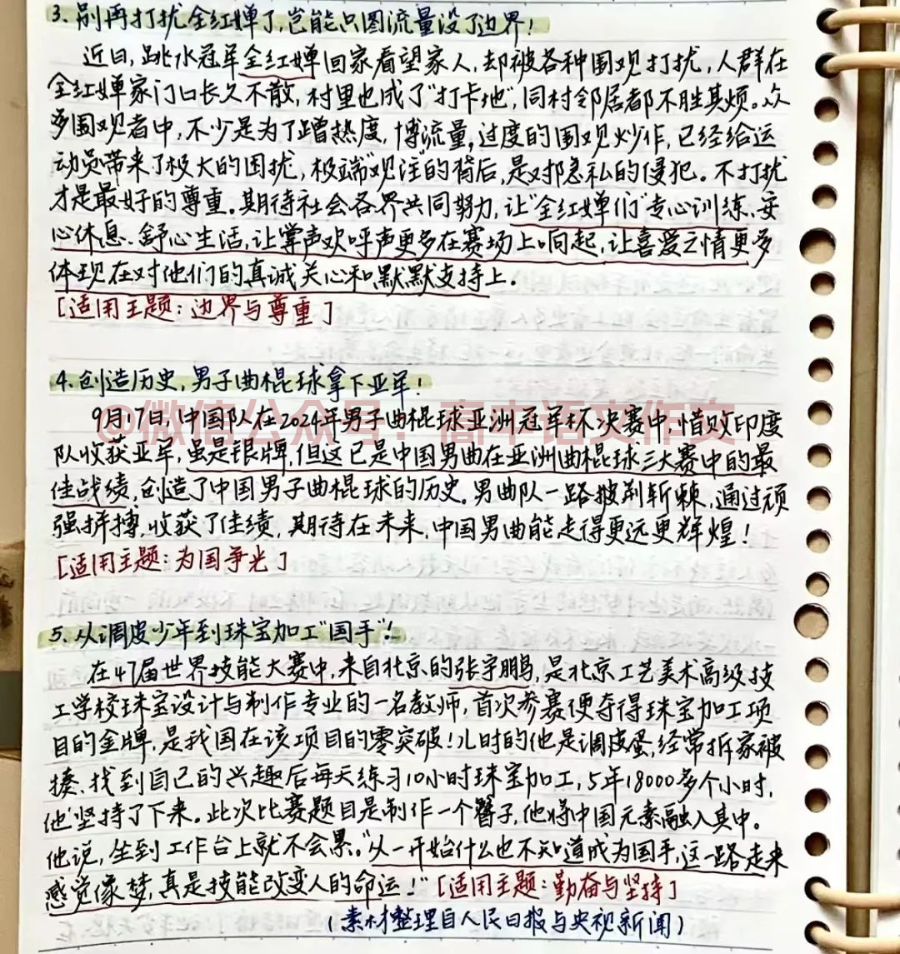 3. 别再打扰全红婵了,岂能只图流量没了边界!
近日,跳水冠军全红婵回家看望家人,却被各种围观打扰,人群在
全红婵家门口长久不散,村里也成了“打卡地”,同村邻居都不胜其烦。众
多围观者中,不少是为了蹭热度,博流量,过度的围观炒作,已经给运
动员带来了极大的困扰,极端“观注”的背后,是对隐私的侵犯。不打扰
才是最好的尊重。期待社会各界共同努力,让“全红婵们”专心训练、安
心休息、舒心生活,让掌声欢呼声更多在赛场上响起,让喜爱之情更多
体现在对他们的真诚关心和默默支持上。
[适用主题:边界与尊重]
4.创造历史,男子曲棍球拿下亚军!
9月17日,中国队在2024年男子曲棍球亚洲冠军杯决赛中,惜败印度
@微信公众号:高中语文作文
队收获亚军,虽是银牌,但这已是中国男曲在亚洲曲棍球三大赛中的最
佳战绩,创造了中国男子曲棍球的历史。男曲队一路披荆斩棘,通过顽
强拼搏,收获了佳绩,期待在未来,中国男曲能走得更远更辉煌!
[适用主题:为国争光]
5.从调皮少年到珠宝加工“国手”!
在47届世界技能大赛中,来自北京的张宇鹏,是北京工艺美术高级技
工学校珠宝设计与制作专业的一名教师,首次参赛便夺得珠宝加工项
目的金牌,是我国在该项目的零突破!儿时的他是调皮蛋,经常拆家被
揍、找到自己的兴趣后每天练习10小时珠宝加工,5年18000多个小时,
他坚持了下来。此次比赛题目是制作一个簪子,他将中国元素融入其中。
他说,坐到工作台上就不会累。“从一开始什么也不知道成为国手,这一路走来
感觉像梦,真是技能改变人的命运!”[适用主题:勤奋与坚持]
(素材整理自人民日报与央视新闻)